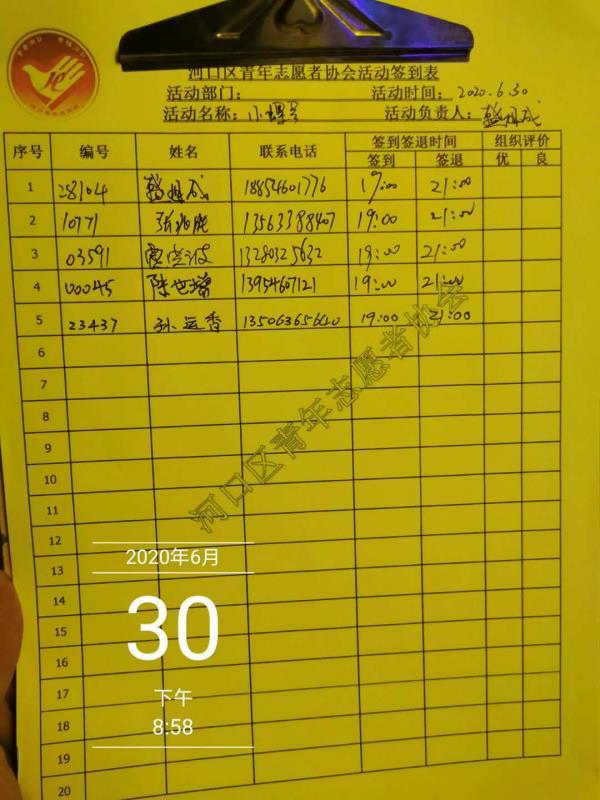 河口区青年志愿者协会活动签到表
活动部门： 活动时间：2020.6.30
活动名称：小螺号 活动负责人：
序号 编号 姓名 联系电话 签到签退时间 组织评价
签到 签退 优 良
1 28104 18854601776 19:00 21:00
2 10771 13563388407 19:00 21:00
3 03591 13280325632 19:00 21:00
4 00045 陈 13954607121 19:00 21:00
5 23437 孙运香 13506365640 19:00 21:00
6
7
8
9
10
11
12
13
14
15
16
17
18
19
20
河口区青年志愿者协会
2020年6月
30
下午
8:58